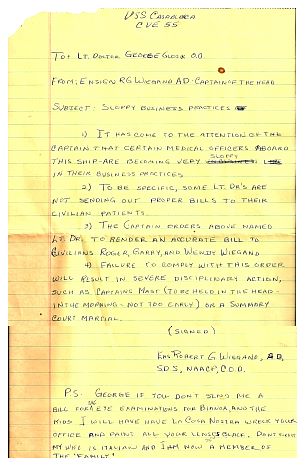 USS CASABLANCA
CVE 55
TO: LT. DOCTOR GEORGE O.D.
FROM: ENSIGN RG WIEGAND AD-CAPTAIN OF THE HEAD
SUBJECT: SLOPPY BUSINESS PRACTICES
1) IT HAS COME TO THE ATTENTION OF THE
CAPTAIN THAT CERTAIN MEDICAL OFFICERS ABOARD
THIS SHIP-ARE BECOMING VERY SLOPPY
IN THEIR BUSINESS PRACTICES
2) TO BE SPECIFIC, SOME LT. DR'S ARE
NOT SENDING OUT PROPER BILLS TO THEIR
CIVILIAN PATIENTS.
3) THE CAPTAIN ORDERS ABOVE NAMED
LT. DR. TO RENDER AN ACCURATE BILL TO
CIVILIANS ROGER, GARRY, AND WENDY WIEGAND
4) FAILURE TO COMPLY WITH THIS ORDER
WILL RESULT IN SEVERE DISCIPLINARY ACTION,
SUCH AS CAPTAINS MAST (TO BE HELD IN THE HEAD
IN THE MORNING - NOT TOO EARLY) OR A SUMMARY
COURT MARTIAL.
(SIGNED)
ENS ROBERT G WIEGAND, AD,
SDS, NAACP, C.O.D.
PS. GEORGE IF YOU DON'T SEND ME A
BILL FOR THE EYE EXAMINATIONS FOR AND THE
KIDS I WILL HAVE LA COSA NOSTRA WRECK YOUR
OFFICE AND PAINT ALL YOUR LENSES BLACK. DON'T
MY WIFE IS ITALIAN AND I AM NOW A MEMBER OF
THE "FAMILY"